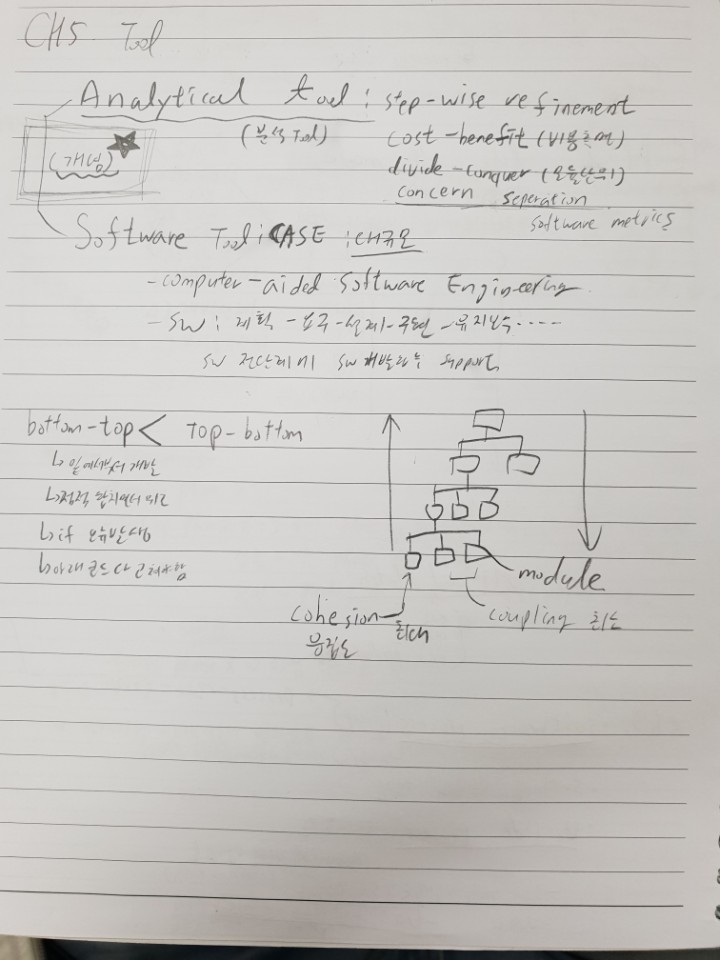 CH5 Tool
Analytical tool : step-wise refinement
(분석 Tool) cost-benefit (비용측면)
(개념) divide-conquer (모듈단위)
concern seperation
software metrics
Software Tool : CASE : 대규모
- computer-aided Software Engineering
- SW : 계획 - 요구 - 설계 - 구현 - 유지보수 ....
SW 전단계에 SW 개발하는 support
bottom-top < TOP-bottom
↳ 밑에서부터 개발
↳
↳ if 오류발생
↳ 아래 코드 다 고쳐야함
module
cohesion 최대 coupling 최소
응집도